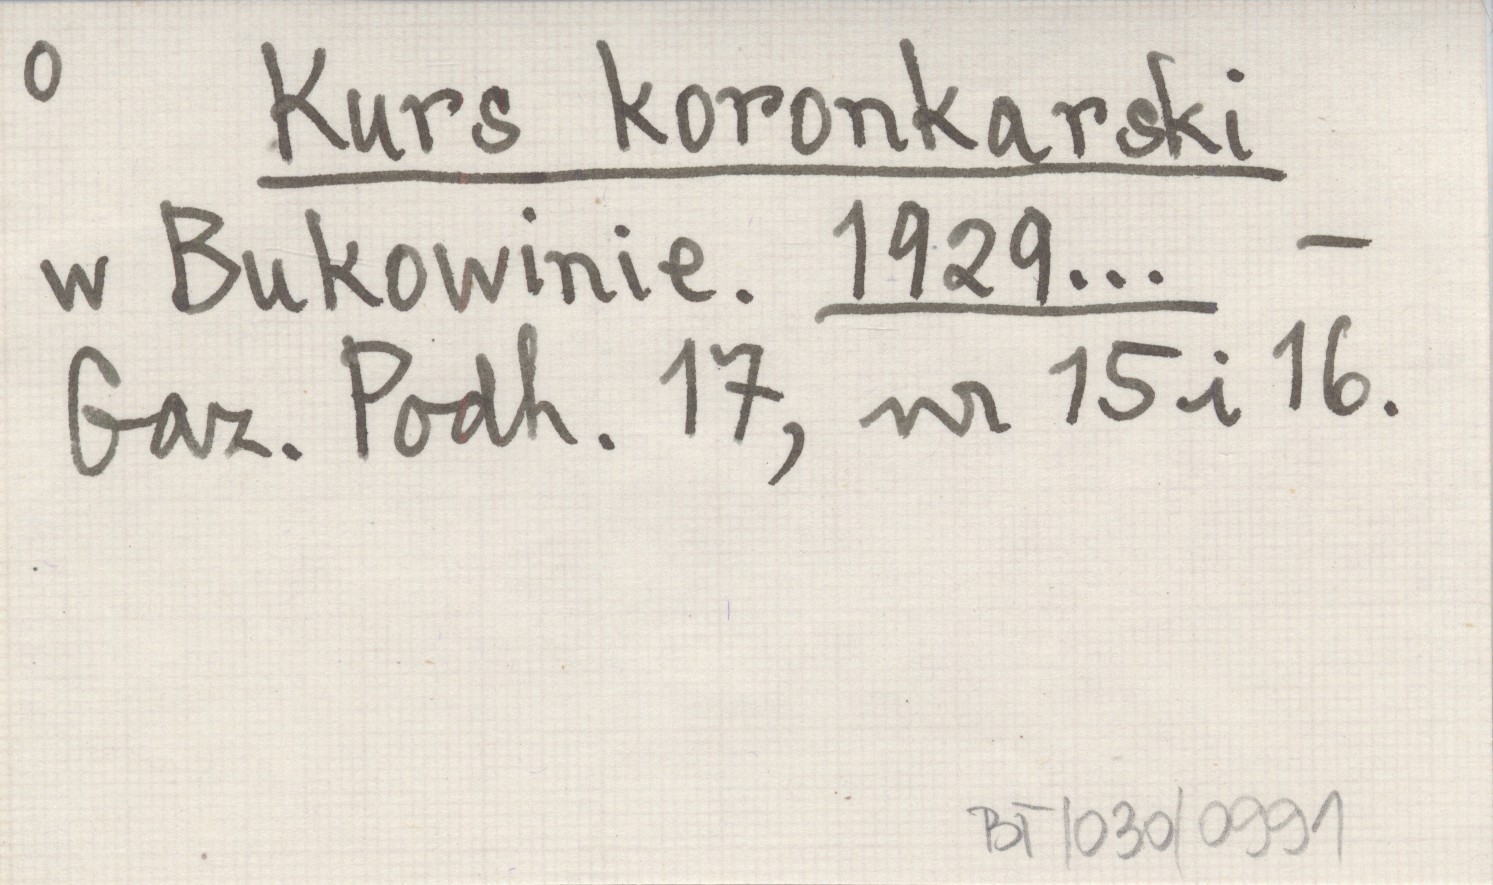 o Kurs koronkarski
w Bukowinie. 1929... –
Gaz. Podh. 17, nr 15 i 16.
BT/030/0991